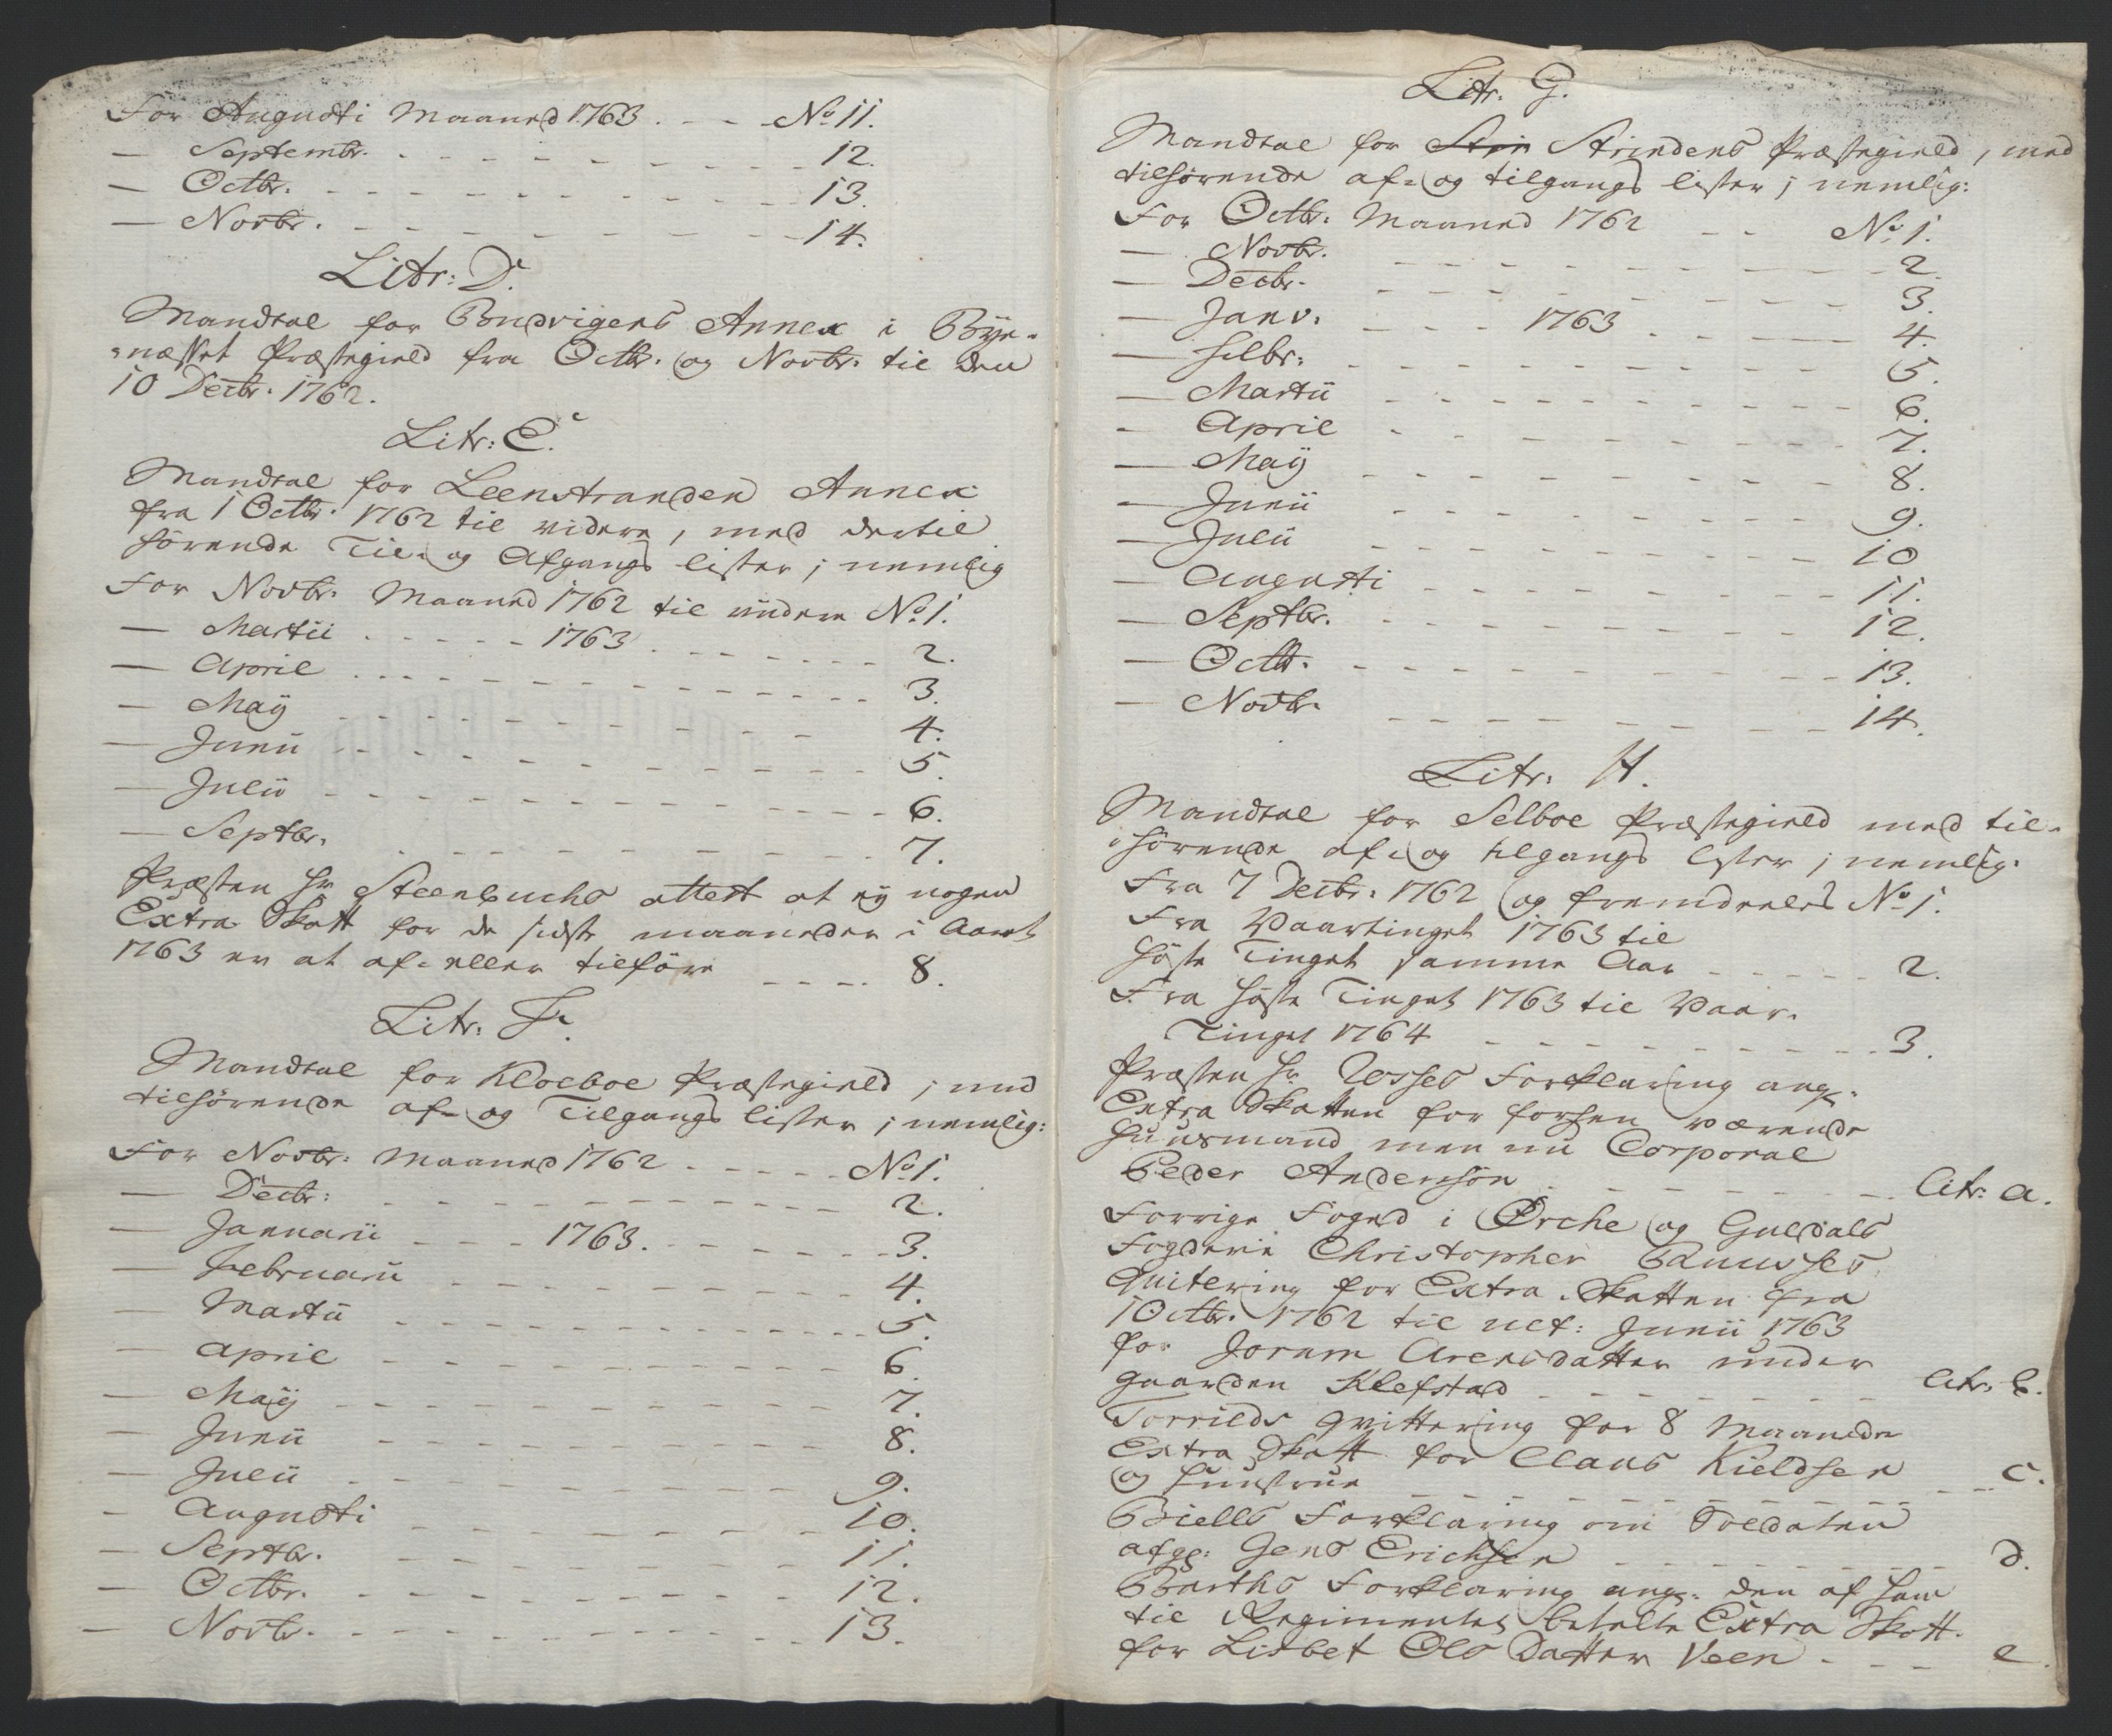 For Augusti Maaned 1763. - - No 11.
— Septembr. - - - - - - - - 12.
— Octbr. - - - - - - - - - 13.
— Novbr. - - - - - - - - - 14.
Litr: D.
Mandtal for Buvigens Annex i Bÿe-
næsset Præstegield fra Octbr. og Novbr. til den
10 Decbr. 1762.
Litr: E.
Mandtal for Leenstranden Annex
fra 1 Octbr. 1762 til videre, med dertil
hörende Til- og Afgangs lister; nemlig
For Novbr. Maaned 1762 til videre No 1.
— Martii - - - - 1763 - - - - - - 2.
— April - - - - - - - - - - - 3.
— Maÿ - - - - - - - - - - - 4.
— Junii - - - - - - - - - - - 5.
— Julii - - - - - - - - - - - 6.
— Septbr. - - - - - - - - - - 7.
Præsten Hr Steenbuchs attest at eÿ nogen
Extra Skatt for de sidste maaneder i Aaret
1763 er at af- eller tilföre - - - - 8.
Litr: F.
Mandtal for Kloeboe Præstegield; med
tilhörende af- og Tilgangs lister; nemlig:
For Novbr: Maaned 1762 - - - - - No 1.
— Decbr: - - - - - - - - - - 2.
— Januarii - - - 1763. - - - - - - 3.
— Februarii - - - - - - - - - 4.
— Martii - - - - - - - - - - - 5.
— April - - - - - - - - - - - 6.
— Maÿ - - - - - - - - - - - 7.
— Junii - - - - - - - - - - - 8.
— Julii - - - - - - - - - - - 9.
— Augusti - - - - - - - - - 10.
— Septbr. - - - - - - - - - - 11.
— Octbr. - - - - - - - - - - 12.
— Novbr. - - - - - - - - - - 13.
Litr: G.
Mandtal for Strin Strindens Præstegield, med
tilhörende af- og tilgangs lister; nemlig:
For Octbr. Maaned 1762 - - No 1.
— Novbr. - - - - - - - - - 2.
— Decbr. - - - - - - - - - 3.
— Janv. - - - 1763 - - - - - 4.
— Febr: - - - - - - - - - - 5.
— Martii - - - - - - - - - 6.
- April - - - - - - - - - 7.
— Maÿ - - - - - - - - - - 8.
— Junii - - - - - - - - - 9.
— Julii - - - - - - - - - 10
— Augusti - - - - - - - - 11.
— Septbr. - - - - - - - - - 12.
— Octbr. - - - - - - - - - 13.
— Novbr. - - - - - - - - - 14.
Litr: H.
Mandtal for Selboe Præstegield med til-
hörende af- og tilgangs lister; nemlig.
Fra 7 Decbr: 1762 og fremdeeles No 1.
Fra Vaartinget 1763 til
Höste Tinget samme Aar - - - - - 2.
Fra Höste Tinget 1763 til Vaar-
Tinget 1764 - - - - - - - - - - 3.
Præsten Hr Forklaring ang:
Extra Skatten for forhen værende
Huusmand men nu Corporal
Peder Andersön - - - - - - - Litr: a.
Forrige Foged i Örche og Guldals
Fogderie Christopher
Qvitering for Extra Skatten fra
1 Octbr. 1762 til ult: Junii 1763
for Jorum Arensdatter under
gaarden Klefstad - - - - - - - Litr: b.
Torrilds qvittering for 8 Maaneder
Extra Skatt for Claus Kieldsen
og Huustrue - - - - - - - - - c.
Bielles Forklaring om Soldaten
afg: Jens Erichsen - - - - - - - d.
Barths Forklaring ang: den af ham
til Regimentet betalte Extra Skatt
for Lisbet Ols Datter Veen - - - - e.